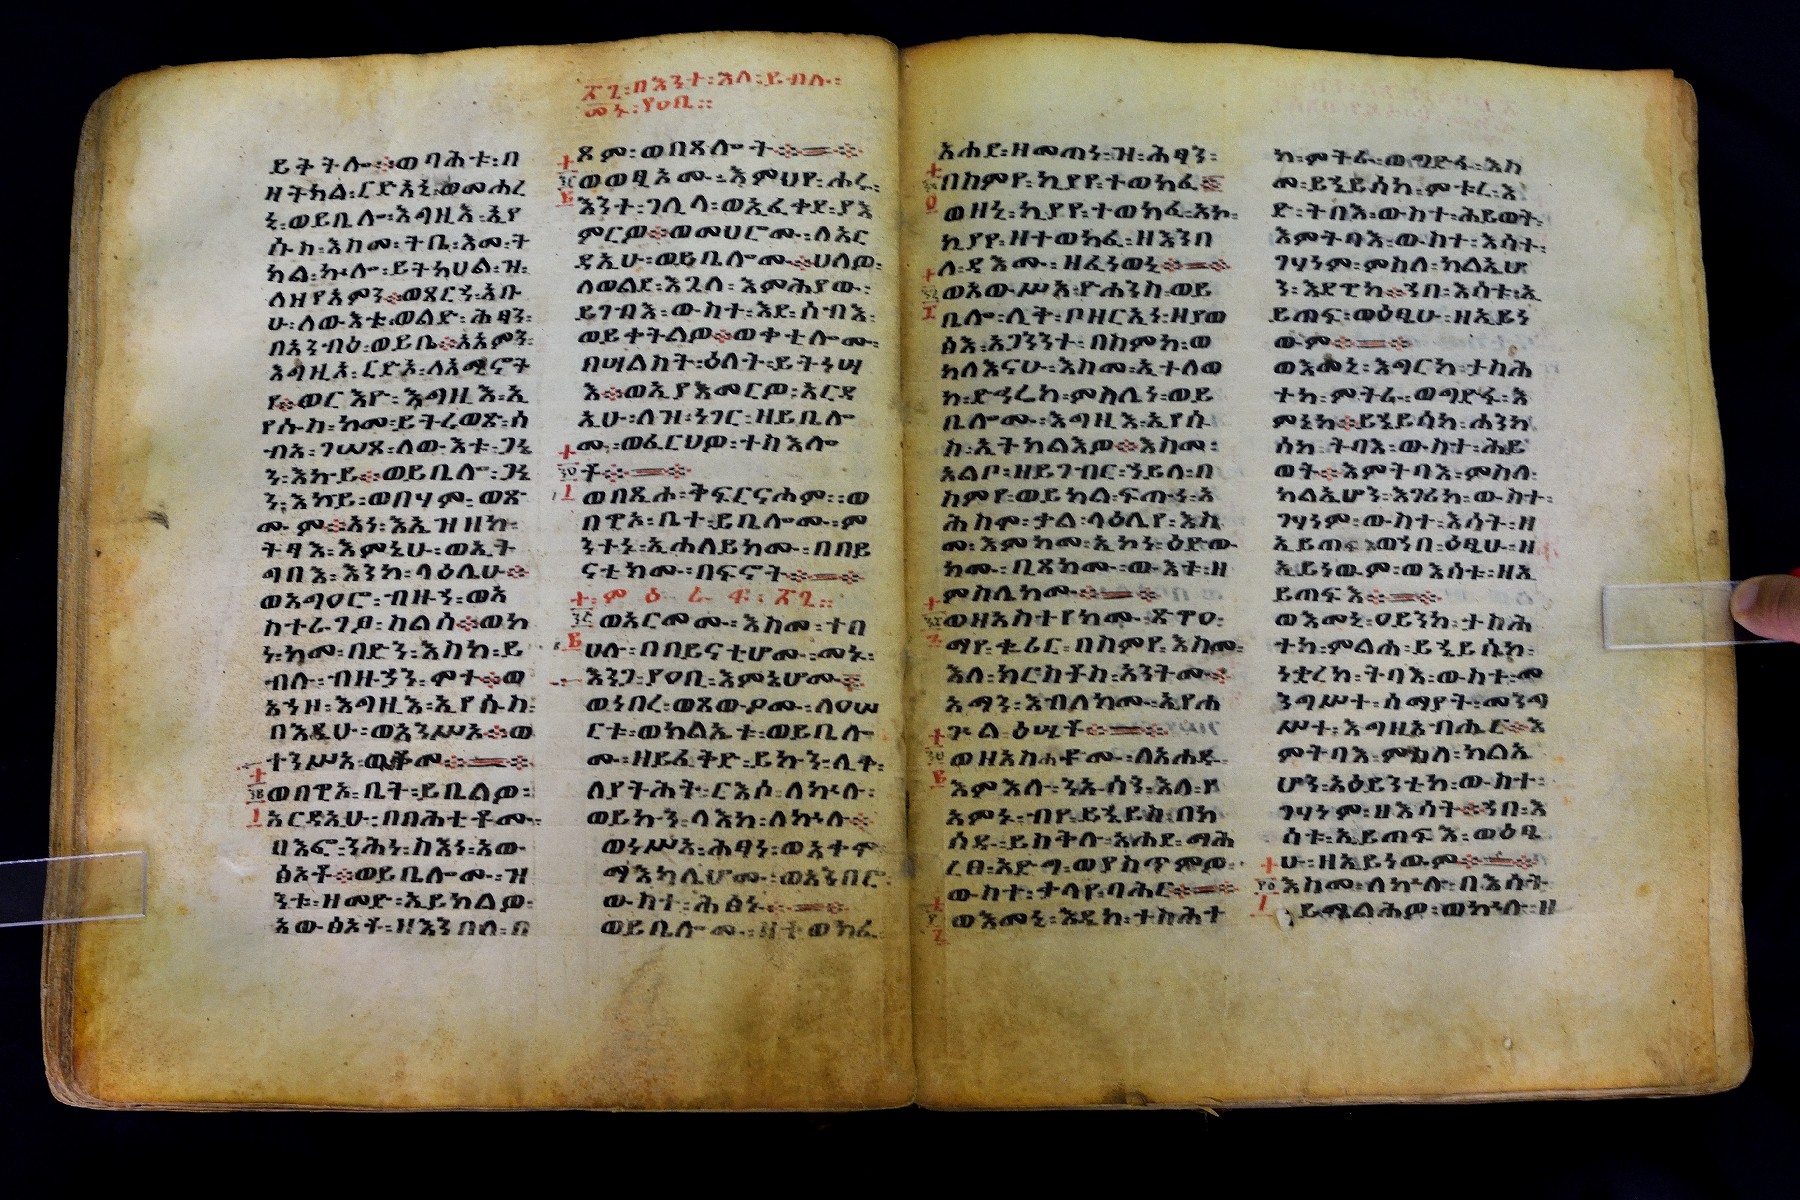 ፳፯፡በእንተ፡እለ፡ይብሉ፡
መኑ፡የዐቢ፡፡
ይቅትሎ፡ወባሕቱ፡በ
ዘትክል፡ርድአኒ፡ወመሐረ
ኒ፡ወይቤሎ፡እግዚእ፡ኢየ
ሱስ፡እስመ፡ትቤ፡እመ፡ት
ክል፡ኵሎ፡ይትከሀል፡ዝ፡
ለዘየአምን፡ወጸርኀ፡አቡ
ሁ፡ለውእቱ፡ወልድ፡ሕፃን፡
በአንብዕ፡ወይቤ፡አአምን፡
እግዚኦ፡ርድኦ፡ለአሚኖት
የ፡ወርእዮ፡እግዚእ፡ኢ
የሱስ፡ከመ፡ይትረወጽ፡ሰ
ብእ፡ገሠጾ፡ለውእቱ፡ጋኔ
ን፡እኩይ፡ወይቤሎ፡ጋኔ
ን፡እኩይ፡ወበሃም፡ወጽ
ሙም፡አነ፡እኤዝዘከ፡
ትፃእ፡እምኔሁ፡ወኢት
ግበእ፡እንከ፡ላዕሌሁ፡
ወአግዐሮ፡ብዙኀ፡ወአ
ስተራገፆ፡ከልሰ፡ወኮ
ነ፡ከመ፡በድን፡እስከ፡ይ
ብሉ፡ብዙኃን፡ሞተ፡ወ
አኀዞ፡እግዚእ፡ኢየሱስ፡
በእዴሁ፡ወአንሥኦ፡ወ
ተንሥአ፡ወቆመ
ወበዊኦ፡ቤተ፡ይቤልዎ፡
አርዳኢሁ፡በባሕቲቶሙ፡
በእፎ፡ንሕነ፡ስእነ፡አው
ፅኦቶ፡ወይቤሎሙ፡ዝ
ንቱ፡ዘመድ፡ኢይክልዎ፡
አውፅኦቶ፡ዘእንበለ፡በ
ጾም፡ወበጸሎት
ወወፂኦሙ፡እምህየ፡ሐሩ፡
እንተ፡ገሊላ፡ወኢፈቀደ፡ያእ
ምርዎ፡ወመሀሮሙ፡ለአር
ዳኢሁ፡ወይቤሎሙ፡ሀለዎ፡
ለወልደ፡እጓለ፡እምሕያው፡
ይገብእ፡ውስተ፡እደ፡ሰብእ፡
ወይቀትልዎ፡ወቀቲሎሙ፡
በሣልስት፡ዕለት፡ይትነሣ
እ፡ወኢያእመርዎ፡አርዳ
ኢሁ፡ለዝ፡ነገር፡ዘይቤሎ
ሙ፡ወፈርህዎ፡ተስእሎ
ቶ
ወበጺሖ፡ቅፍርናሖም፡፡ወ
በዊኦ፡ቤተ፡ይቤሎሙ፡ም
ንተኑ፡ኢሐለይክሙ፡በበይ
ናቲክሙ፡በፍኖት
ምዕራፍ፡፳፯፡፡
ወአርመሙ፡እስመ፡ተበ
ሀሉ፡በበይናቲሆሙ፡መኑ፡
እንጋ፡የዐቢ፡እምኔሆሙ
ወነበረ፡ወጸውዖሙ፡ለዐሠ
ርቱ፡ወክልኤቱ፡ወይቤሎ
ሙ፡ዘይፈቅድ፡ይኩን፡ሊቀ፡
ለያትሕት፡ርእሶ፡ለኵሉ፡
ወይኩን፡ላእከ፡ለኵሉ
ወነሥአ፡ሕፃነ፡ወአቀሞ
ማእከሊሆሙ፡ወአንበሮ
ውስተ፡ሕፅኑ
ወይቤሎሙ፡ዘተወክፈ፡
አሐደ፡ዘመጠነ፡ዝ፡ሕፃን፡
በስምየ፡ኪያየ፡ተወክፈ
ወዘኒ፡ኪያየ፡ተወክፈ፡አኮ፡
ኪያየ፡ዘተወክፈ፡ዘእንበ
ለ፡ዳእሙ፡ዘፈነወኒ
ወአውሥአ፡ዮሐንስ፡ወይ
ቤሎ፡ሊቅ፡ቦዘርኢነ፡ዘያወ
ፅእ፡አጋንንተ፡በስምከ፡ወ
ከላእናሁ፡እስመ፡ኢተለወ
ከ፡ድኅሬከ፡ምስሌነ፡ወይ
ቤሎሙ፡እግዚእ፡ኢየሱ
ስ፡ኢትክልእዎ፡እስመ፡
አልቦ፡ዘይገብር፡ኀይለ፡በ
ስምየ፡ወይክል፡ፍጡነ፡አ
ሕስሞ፡ቃል፡ላዕሌየ፡እስ
መ፡እምከመ፡ኢኮነ፡ዕድው
ክሙ፡ቢጸክሙ፡ውእቱ፡ዘ
ምስሌክሙ
ወዘአስተየክሙ፡ጽዋዐ፡
ማየ፡ቈሪር፡በስምየ፡እስመ፡
እለ፡ክርስቶስ፡አንትሙ
አማን፡እብለክሙ፡ኢየሐ
ጕል፡ዕሤቶ
ወዘአስሐቶሙ፡ለአሐዱ፡
እምእለ፡ንኡሳን፡እለ፡የ
አምኑ፡ብየ፡ይኄይሶ፡በክ
ሳዱ፡ይስቅሉ፡አሐደ፡ማሕ
ረፀ፡አድግ፡ወያስጥምዎ፡
ውስተ፡ቀላየ፡ባሕር
ወእመኒ፡እዴከ፡ታስሕተ
ከ፡ምትራ፡ወግድፋ፡እስ
መ፡ይኄይሰከ፡ምቱረ፡እ
ድ፡ትባእ፡ውስተ፡ሕይወት፡
እምትባእ፡ውስተ፡እሳት፡
ገሃነም፡ምስለ፡ክልኤሆ
ን፡እደዊከ፡ኀበ፡እሳቱ፡ኢ
ይጠፍእ፡ወዕፄሁ፡ዘኢይነ
ውም
ወእመኒ፡እግርከ፡ታስሕ
ተከ፡ምትራ፡ወግድፋ፡እ
ምኔከ፡ይኄይሰከ፡ሐንካ
ሰከ፡ትባእ፡ውስተ፡ሕይ
ወት፡እምትባእ፡ምስለ፡
ክልኤሆን፡እገሪከ፡ውስተ፡
ገሃነም፡ውስተ፡እሳት፡ዘ
ኢይጠፍእ፡ወኀበ፡ዕፄሁ፡ዘ
ኢይነውም፡ወእሳቱ፡ዘኢ
ይጠፍእ
ወእመኒ፡ዐይንከ፡ታስሕ
ተከ፡ምልሐ፡ይኄይሰከ፡
ነቋረከ፡ትባእ፡ውስተ፡መ
ንግሥተ፡ሰማያት፡መንግ
ሥተ፡እግዚአብሔር፡እ
ምትባእ፡ምስለ፡ክልኤ
ሆን፡አዕይንቲከ፡ውስተ፡
ገሃነም፡ዘእሳት፡ኀበ፡እ
ሳቱ፡ኢይጠፍእ፡ወዕፄ
ሁ፡ዘኢይነውም
እስመ፡ለኵሉ፡በእሳት
ይሜልሕዎ፡ወኵሉ፡ዘ